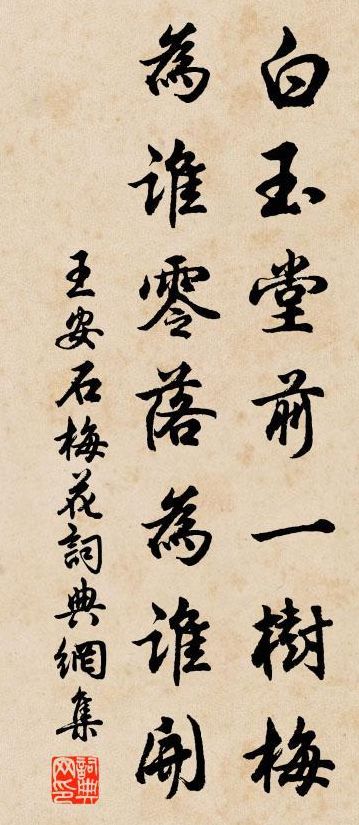 白玉堂前一樹梅
為誰零落為誰開
王安石梅花詞典網集
詞典網印